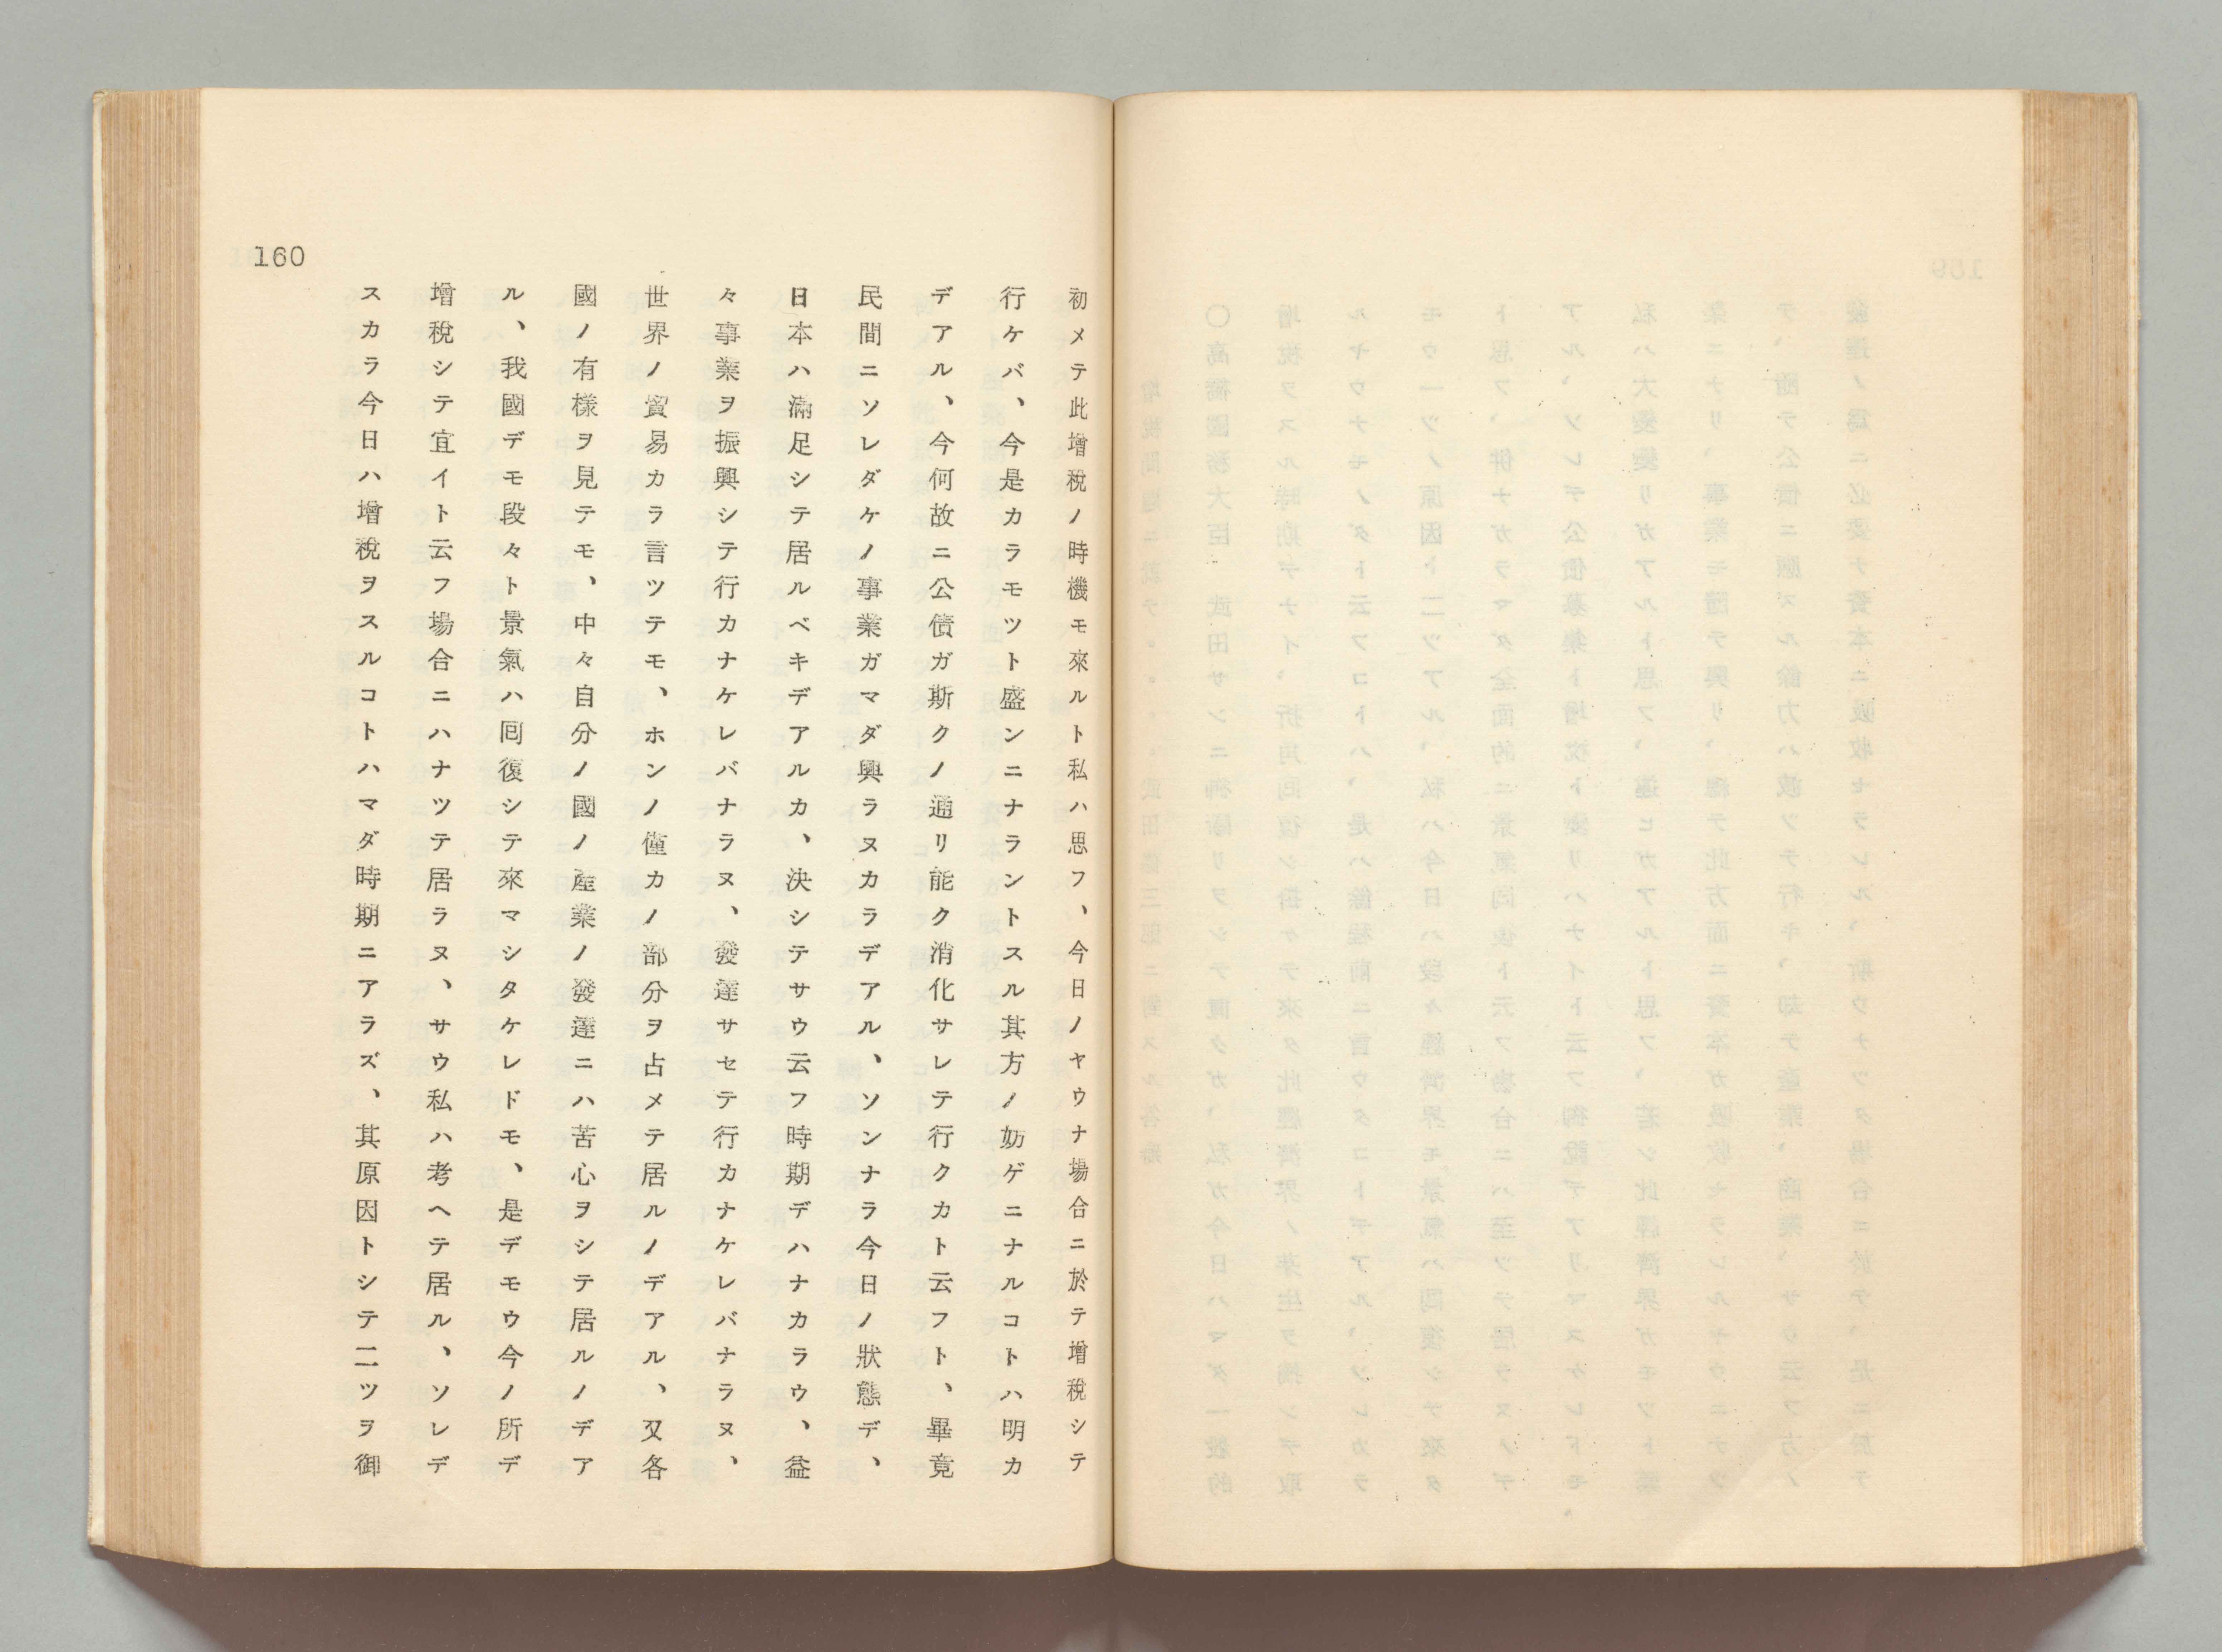 160
初メテ此增稅ノ時機モ來ルト私ハ思フ、今日ノヤウナ場合ニ於テ增稅シテ
行ケバ、今是カラモツト盛ンニナラントスル其方ノ妨ゲニナルコトハ明カ
デアル、今何故ニ公債ガ斯クノ通リ能ク消化サレテ行クカト云フト、畢竟
民間ニソレダケノ事業ガマダ興ラヌカラデアル、ソンナラ今日ノ狀態デ、
日本ハ滿足シテ居ルベキデアルカ、決シテサウ云フ時期デハナカラウ、益
々事業ヲ振興シテ行カナケレバナラヌ、發達サセテ行カナケレバナラヌ、
世界ノ貿易カラ言ツテモ、ホンノ僅カノ部分ヲ占メテ居ルノデアル、又各
國ノ有樣ヲ見テモ、中々自分ノ國ノ產業ノ發達ニハ苦心ヲシテ居ルノデア
ル、我國デモ段々ト景氣ハ囘復シテ來マシタケレドモ、是デモウ今ノ所デ
增稅シテ宜イト云フ場合ニハナツテ居ラヌ、サウ私ハ考ヘテ居ル、ソレデ
スカラ今日ハ增稅ヲスルコトハマダ時期ニアラズ、其原因トシテ二ツヲ御